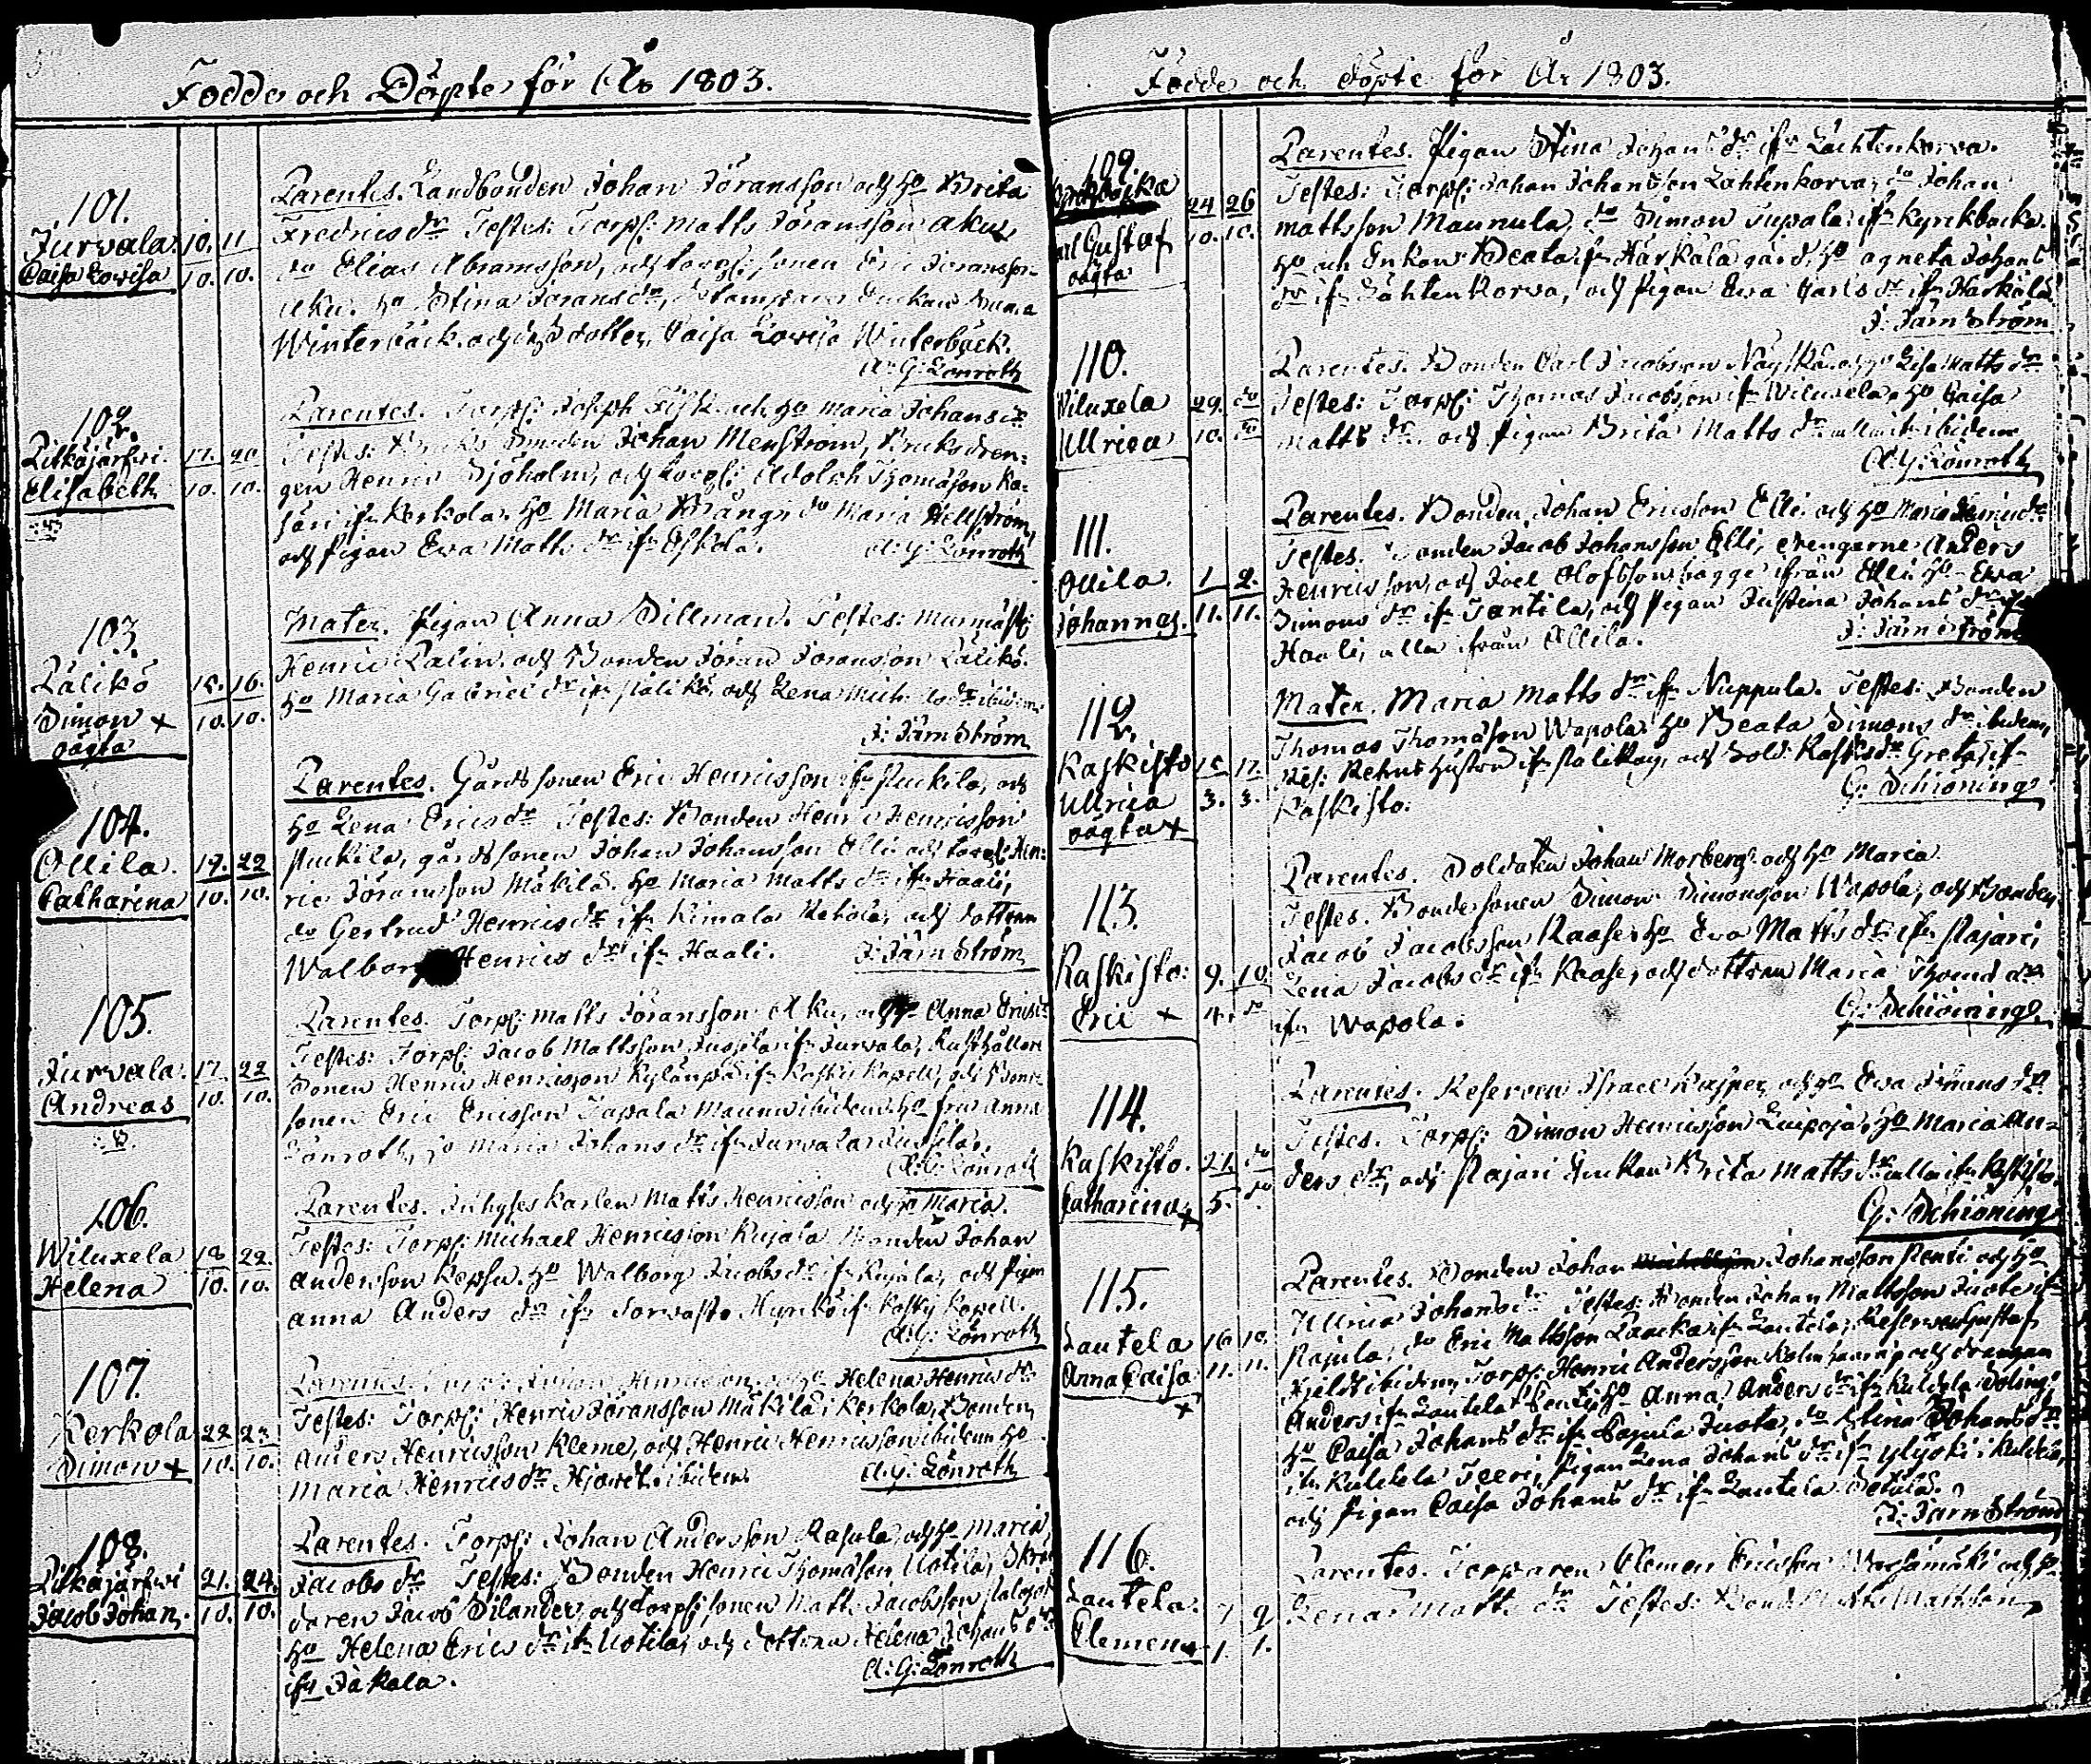 Födde och Döpte för År 1803.
101.
Jurvala. 10. 11
Caisa Lovisa 10. 10.
Parentes. Landbonden Johan Jöransson och ho Brita
Fredrics dr Testes: Torp: Matts Jöransson Aku,
do Elias Abramsson, och torp: sonen Eric Joransson
Aku. ho Stina Jorans dr,
Winterbäck. och dess dotter, Caisa Lovisa Winterbäck.
A: G: Lönroth
102.
Pitkäjärfvi. 17. 20
Elisabeth 10. 10.
Parentes. Torp: Joseph Fisk och ho Maria Johans dr
Testes: Bruks Johan Menström, Bruksdren:
gen Henric Sjöholm, och torp: Adolph Thomasson Ka:
säri ifr Kerkola. ho Maria Brång, do Maria Hellström,
och Pigan Eva Matts dr ifr Eskola. A: G: Lönroth
103.
Pälikö 15. 16.
Simon + 10. 10.
oägta
Mater. Pigan Anna Dillman. Testes: Murmäst:
Henric Palin. och Bonden Jöran Joransson Pälikö.
ho Maria Gabriels dr ifr Pälikö, och Lena Mich dr ibidem.
J: Järnström
104.
Ollila. 19. 22
Catharina 10. 10.
Parentes. Gårds sonen Eric Henricsson ifr Puckila, och
ho Lena Erics dr Testes: Bonden Henric Henricsson
Puckila, gårds sonen Johan Johansson Elli och torp: Hen:
ric Joransson Mäkilä. ho Maria Matts dr ifr Haali,
do Gertrud Henrics dr ifr Kimala Rekola, och dottren
Walborg Henrics dr ifr Haali. J: Järnström
105.
Jurvala. 17. 22
Andreas 10. 10.
Parentes. Torp: Matts Joransson Aku, och ho Anna Erics dr
Testes: Torp: Jacob Mattsson ifr Jurvala, Rusthållare
Sonen Henric Henricsson Kylänpä ifr Koskis Kapell, och Bond:
sonen Eric Ericsson Tapala Maunu ibidem. ho fru Anna
Lönroth, ho Maria Johans dr ifr Jurvala
A: G: Lönroth
106.
Wiluxela 18. 22.
Helena 10. 10.
Parentes. Inhyses karlen Matts Henricsson och ho Maria.
Testes: Torp: Michael Henricsson Kujala Bonden Johan
Andersson Kepsu. ho Walborg Jacobs dr ifr Kujala, och Pigan
Anna Anders dr ifr Sorvasto Hyrikö ifr Kosky Kapell.
A: G: Lönroth
107.
Kerkola 22 23.
Simon + 10. 10.
Parentes. Simon Henricsson, och ho Helena Henrics dr
Testes: Torp: Henric Joransson Mäkilä i Kerkola, Bonden
Anders Henricsson Kleme, och Henric Henricsson ibidem ho
Maria Henrics dr ibidem. A: G: Lönroth
108.
Pitkäjärfwi 21. 24.
Jacob Johan. 10. 10.
Parentes. Torp: Johan Andersson Rasula, och ho Maria
Jacobs dr Testes: Bonden Henric Thomasson Uotila, Skräd
daren Jacob Silander, och torp: sonen Matts Jacobsson
ho Helena Erics dr ifr Uotila, och dottren Helena Johans dr
ifr Jäkala. A: G: Lönroth
Födde och döpte för År 1803.
109.
24 26
Carl Gustaf 10. 10.
oägta
Parentes. Pigan Stina Johans dr ifr Lachtenkorva.
Testes: Torp: Johan Johansson Lahtenkorva, do Johan
Mattsson Maunula, do Simon Tupala ifr Kyrkbacka.
ho och Enkan Beata ifr Härkälä gård, ho Agneta Johans
dr ifr Lähtenkorva, och Pigan Eva Carls dr ifr Härkälä
J: Järnström
110.
Wiluxela 29. do
Ullrica 10. do
Parentes. Bonden Carl Jacobsson och ho Lisa Matts dr
Testes: Torp: Thomas Jacobsson ifr Wiluxela, ho Caisa
Matts dr och pigan Brita Matts dr ibidem
A: G: Lönroth
111.
Ollila. 1 2.
Johannes. 11. 11.
Parentes. Bonden Johan Ericsson Elli och ho Maria Simons dr
Testes. Bonden Jacob Johansson Elli, drengarne Anders
Henricsson, och Joel Olofsson ifrån Elli. ho Eva
Simons dr ifr Tantila, och Pigan Justina Johans dr
Haali, alla ifrån Ollila. J: Järnström
112.
Kaskisto 15 17.
Ullrica 3. 3.
oägta +
Mater. Maria Matts dr ifr Nuppula. Testes: Bonden
Thomas Thomasson Wapola. ho Beata Simons dr ibidem,
Res: Rehns hustru ifr Pälikö, och Sold: Kaskis dr Greta ifr
Kaskisto. G: Schiöning
113.
Kaskisto: 9. 10
Eric + 4. do
Parentes. Soldaten Johan Morberg och ho Maria
Testes. Bondesonen Simon Simonsson Wapola, och Bonden
Jacob Jacobsson Kaase. ho Eva Matts dr ifr Pajari,
Lena Jacobs dr ifr Kaase, och dottren Maria Thomas dr
ifr Wapola. G: Schiöning
114.
Kaskisto. 21. do
Catharina + 5. do
Parentes. Reserven Israel Kasper, och ho Eva Johans dr
Testes. Torp: Simon Henricsson ho Maria An=
ders dr, och Pajari Enckan Brita Matts dr alla ifr Kaskisto.
G: Schiöning
115.
Lautela 10. 10.
Anna Caisa 11. 11.
+
Parentes. Bonden Johan Johansson Penti och ho
Ullrica Johans dr Testes: Bonden Johan Mattsson Juote ifr
Pajula, do Eric Mattsson Laucka ifr Lautela, Reserven Gustaf
ibidem, Torp: Henric Andersson och drengen
Anders ifr Lautela Penti, ho Anna Anders dr ifr Kuldela
ho Caisa Johans dr ifr Pajula Juota, do Stina Johans dr
ifr Kuldela Teeri, Pigan Lena Johans dr ifr Ylijoki i Kuldela,
och Pigan Caisa Johans dr ifr Lautela Sotala.
J: Järnström
116.
Lautela. 7 9
Clemens 1. 1.
Parentes. Torparen Clemen Ericsson och ho
Lena Matts dr Testes: Bond Mattsson